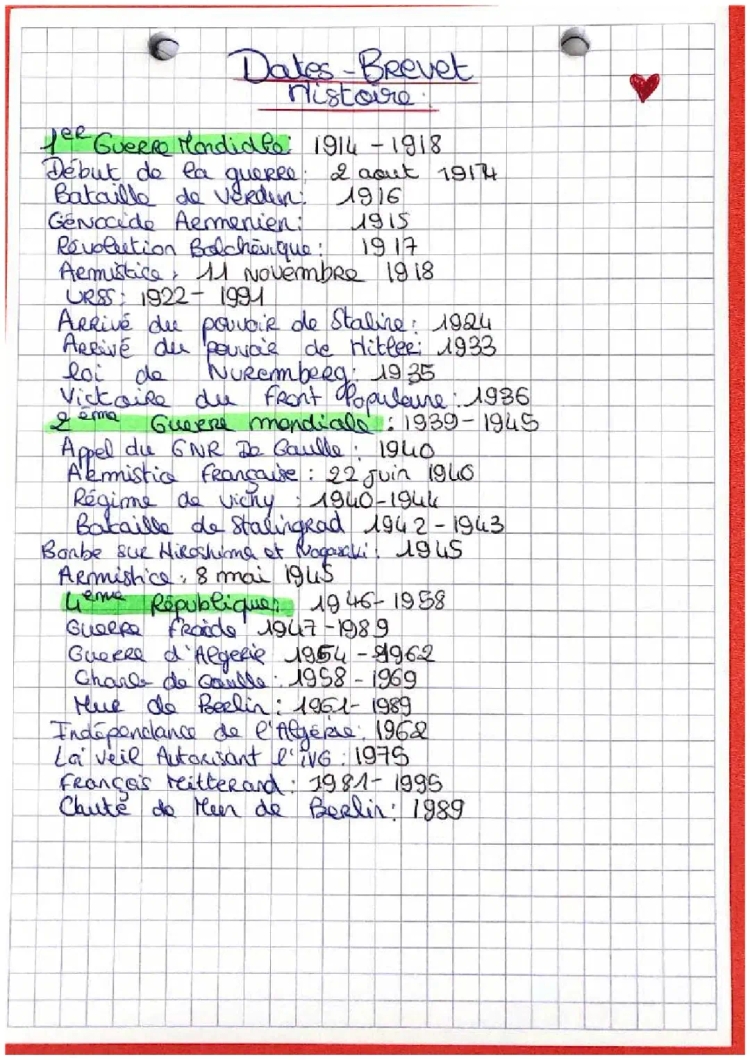 Dates - Brevet
Histoire :
1er Guerre Mondiale : 1914 - 1918
Début de la guerre : 2 aout 1914
Bataille de Verdun : 1916
Génocide Armenien : 1915
Révolution Bolchévique : 1917
Armistice : 11 Novembre 1918
URSS : 1922 - 1991
Arrivé du pouvoir de Staline : 1924
Arrivé du pouvoir de Hitler : 1933
loi de Nuremberg : 1935
Victoire du Front Populaire : 1936
2ème Guerre mondiale : 1939 - 1945
Appel du GNR De Gaulle : 1940
Armistice Française : 22 juin 1940
Régime de vichy : 1940-1944
Bataille de Stalingrad 1942 - 1943
Bonbe sur Hiroshima et Nagasaki : 1945
Armistice : 8 mai 1945
4ème République : 1946 - 1958
Guerre froide 1947 - 1989
Guerre d'Algerie 1954 - 1962
Charle de Gaulle : 1958 - 1969
Mur de Berlin : 1961 - 1989
Indépendance de l'Algérie : 1962
Loi Veil Autorisant l'iVG : 1975
François Mitterand : 1981 - 1995
Chute de Mur de Berlin : 1989